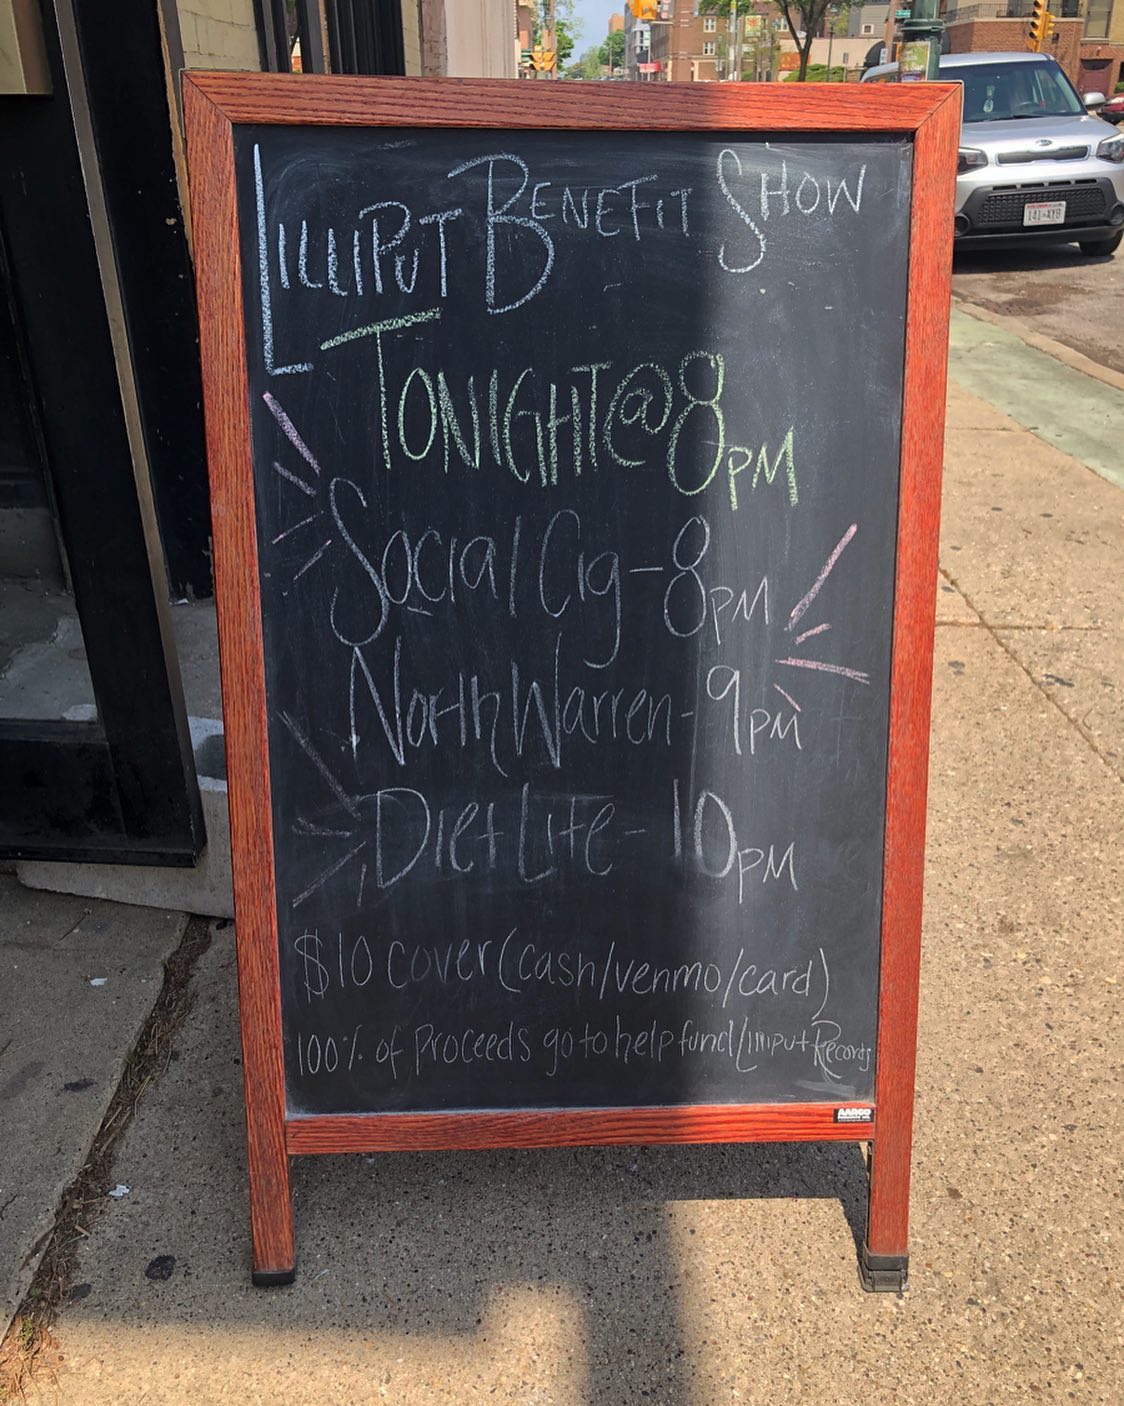 LILLIPUT BENEFIT SHOW
TONIGHT@8PM
Social Cig-8PM
North Warren-9PM
Diet Lite-10PM
$10 cover (cash/venmo/card)
100% of Proceeds go to help fund Lilliput Records
AARCO
KIA
141-AYB